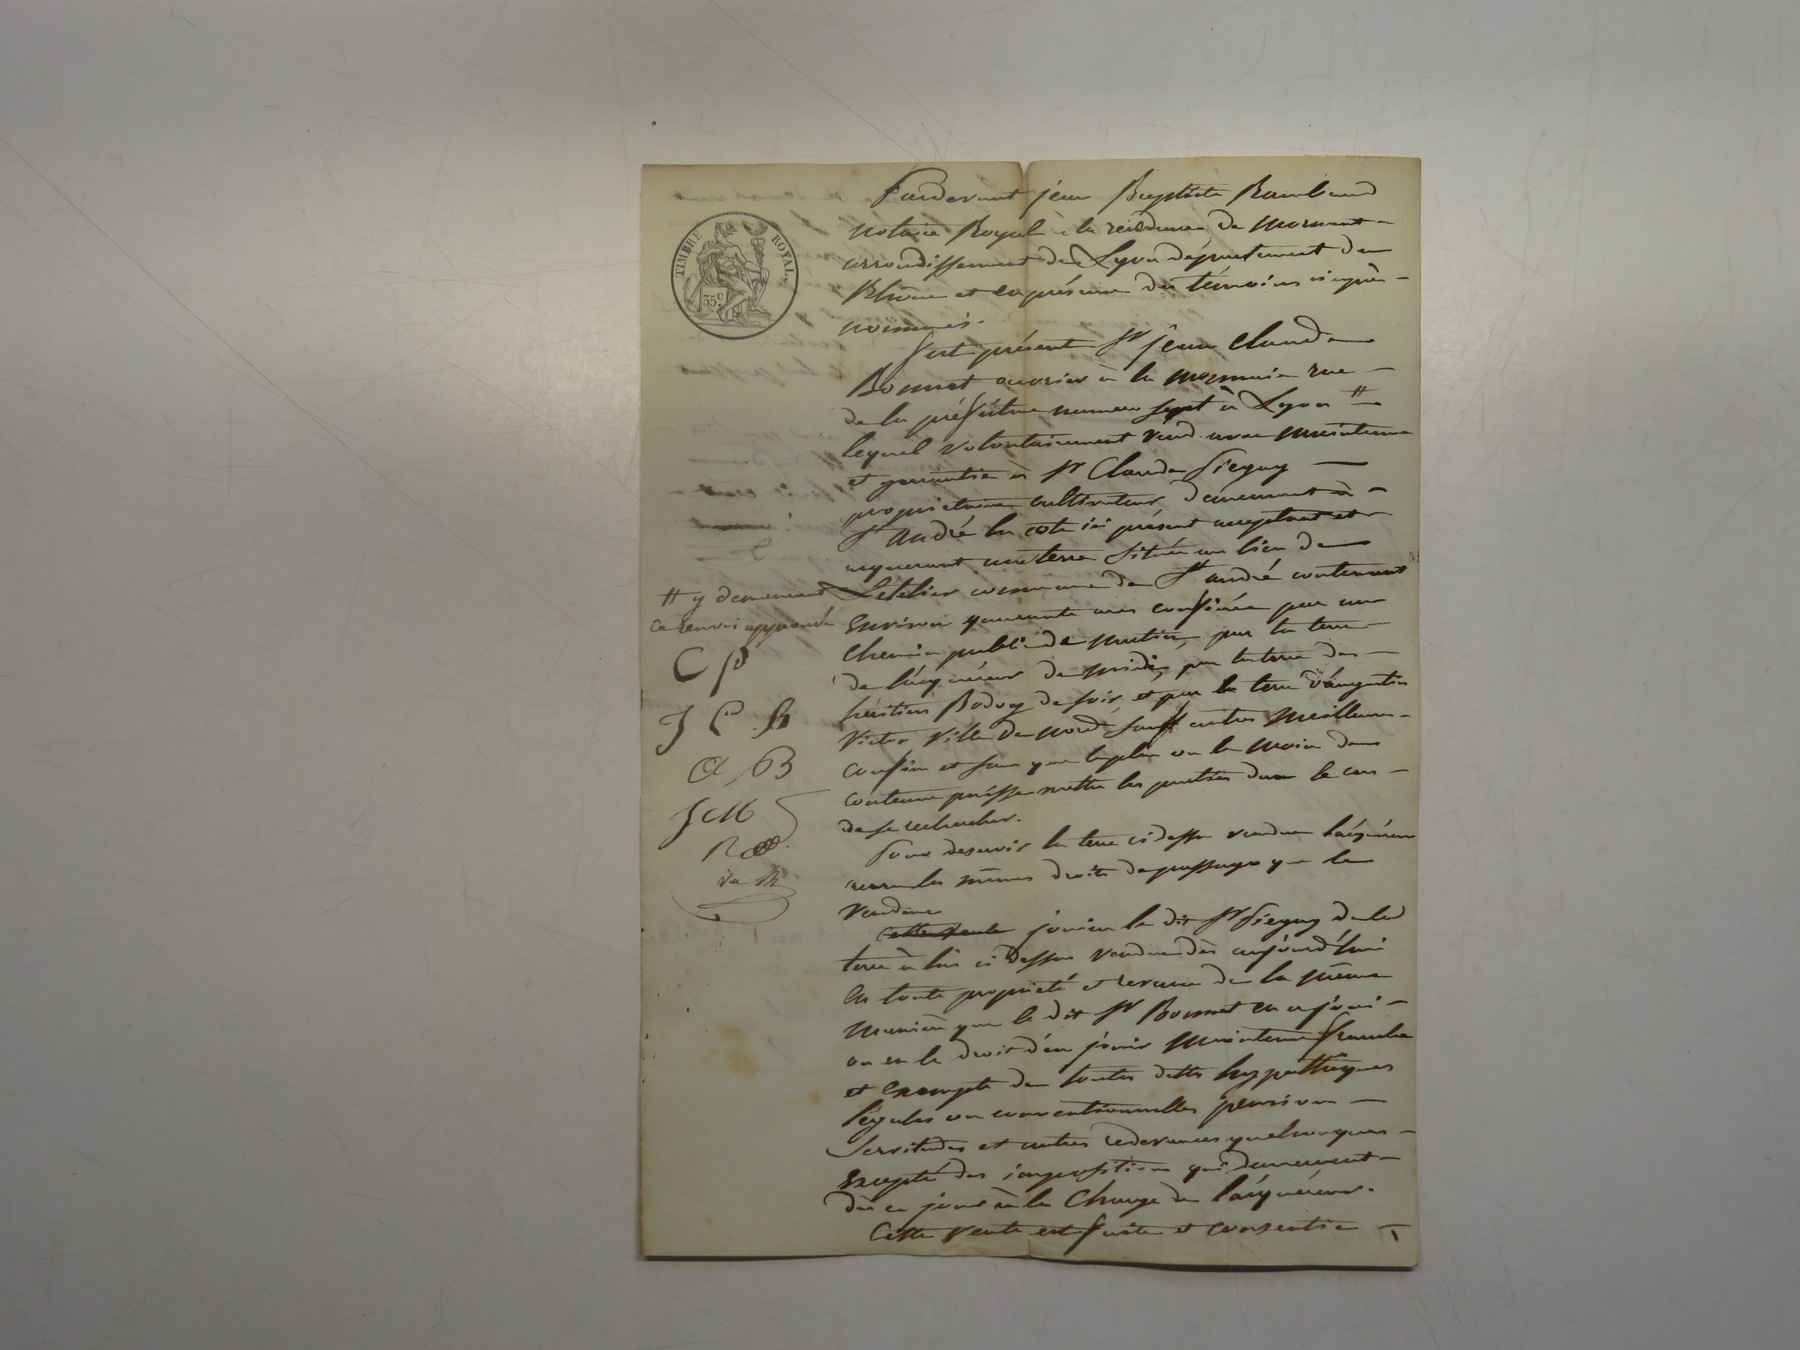 TIMBRE ROYAL
35c
Pardevant jean Baptiste Rambaud
notaire Royal à la residence de mornant
arrondissement de Lyon département du
Rhône et en présence des témoins ci après
nommés.
fut présent Sr jean Claude
Bonnet ouvrier à la monnaie rue
de la préfecture numero sept à Lyon #
lequel volontairement vend avec maintenue
et garantie à Sr Claude Piegay
proprietaire cultivateur demeurant à
St André la cote ici présent acceptant et
acquerant une terre située au lieu de
commune de St andré contenant
Environ quarante ares confinée par un
chemin public de matin, par la terre
de l'acquéreur de midi, par la terre des
héritiers de soir, et par la terre d'augustin
Victor Ville de nord sauf autres meilleurs
confins et sans que le plus ou le moin dans
contenue puisse mettre les parties dans le cas
de se rechercher.
Pour deservir la terre ci dessu vendue l'acquéreur
aura les mêmes droits de passage que le
Vendeur
cette vente jouira le dit Sr Piegay de la
terre à lui ci dessus vendue dès aujourd'hui
En toute propriété et revenu de la même
manière que le dit Sr Bonnet en a joui
ou eu le droit d'en jouir maintenue franche
et Exempte de toutes dettes hypothèques
légales ou conventionnelles pension
Servitudes et autres redevances quelconques
Excepté des impositions qui demeurent
dès ce jour à la Charge de l'acquéreur.
Cette Vente est faite et consentie
# y demeurant
ce renvoi approuvé
C P
J C B
JCM